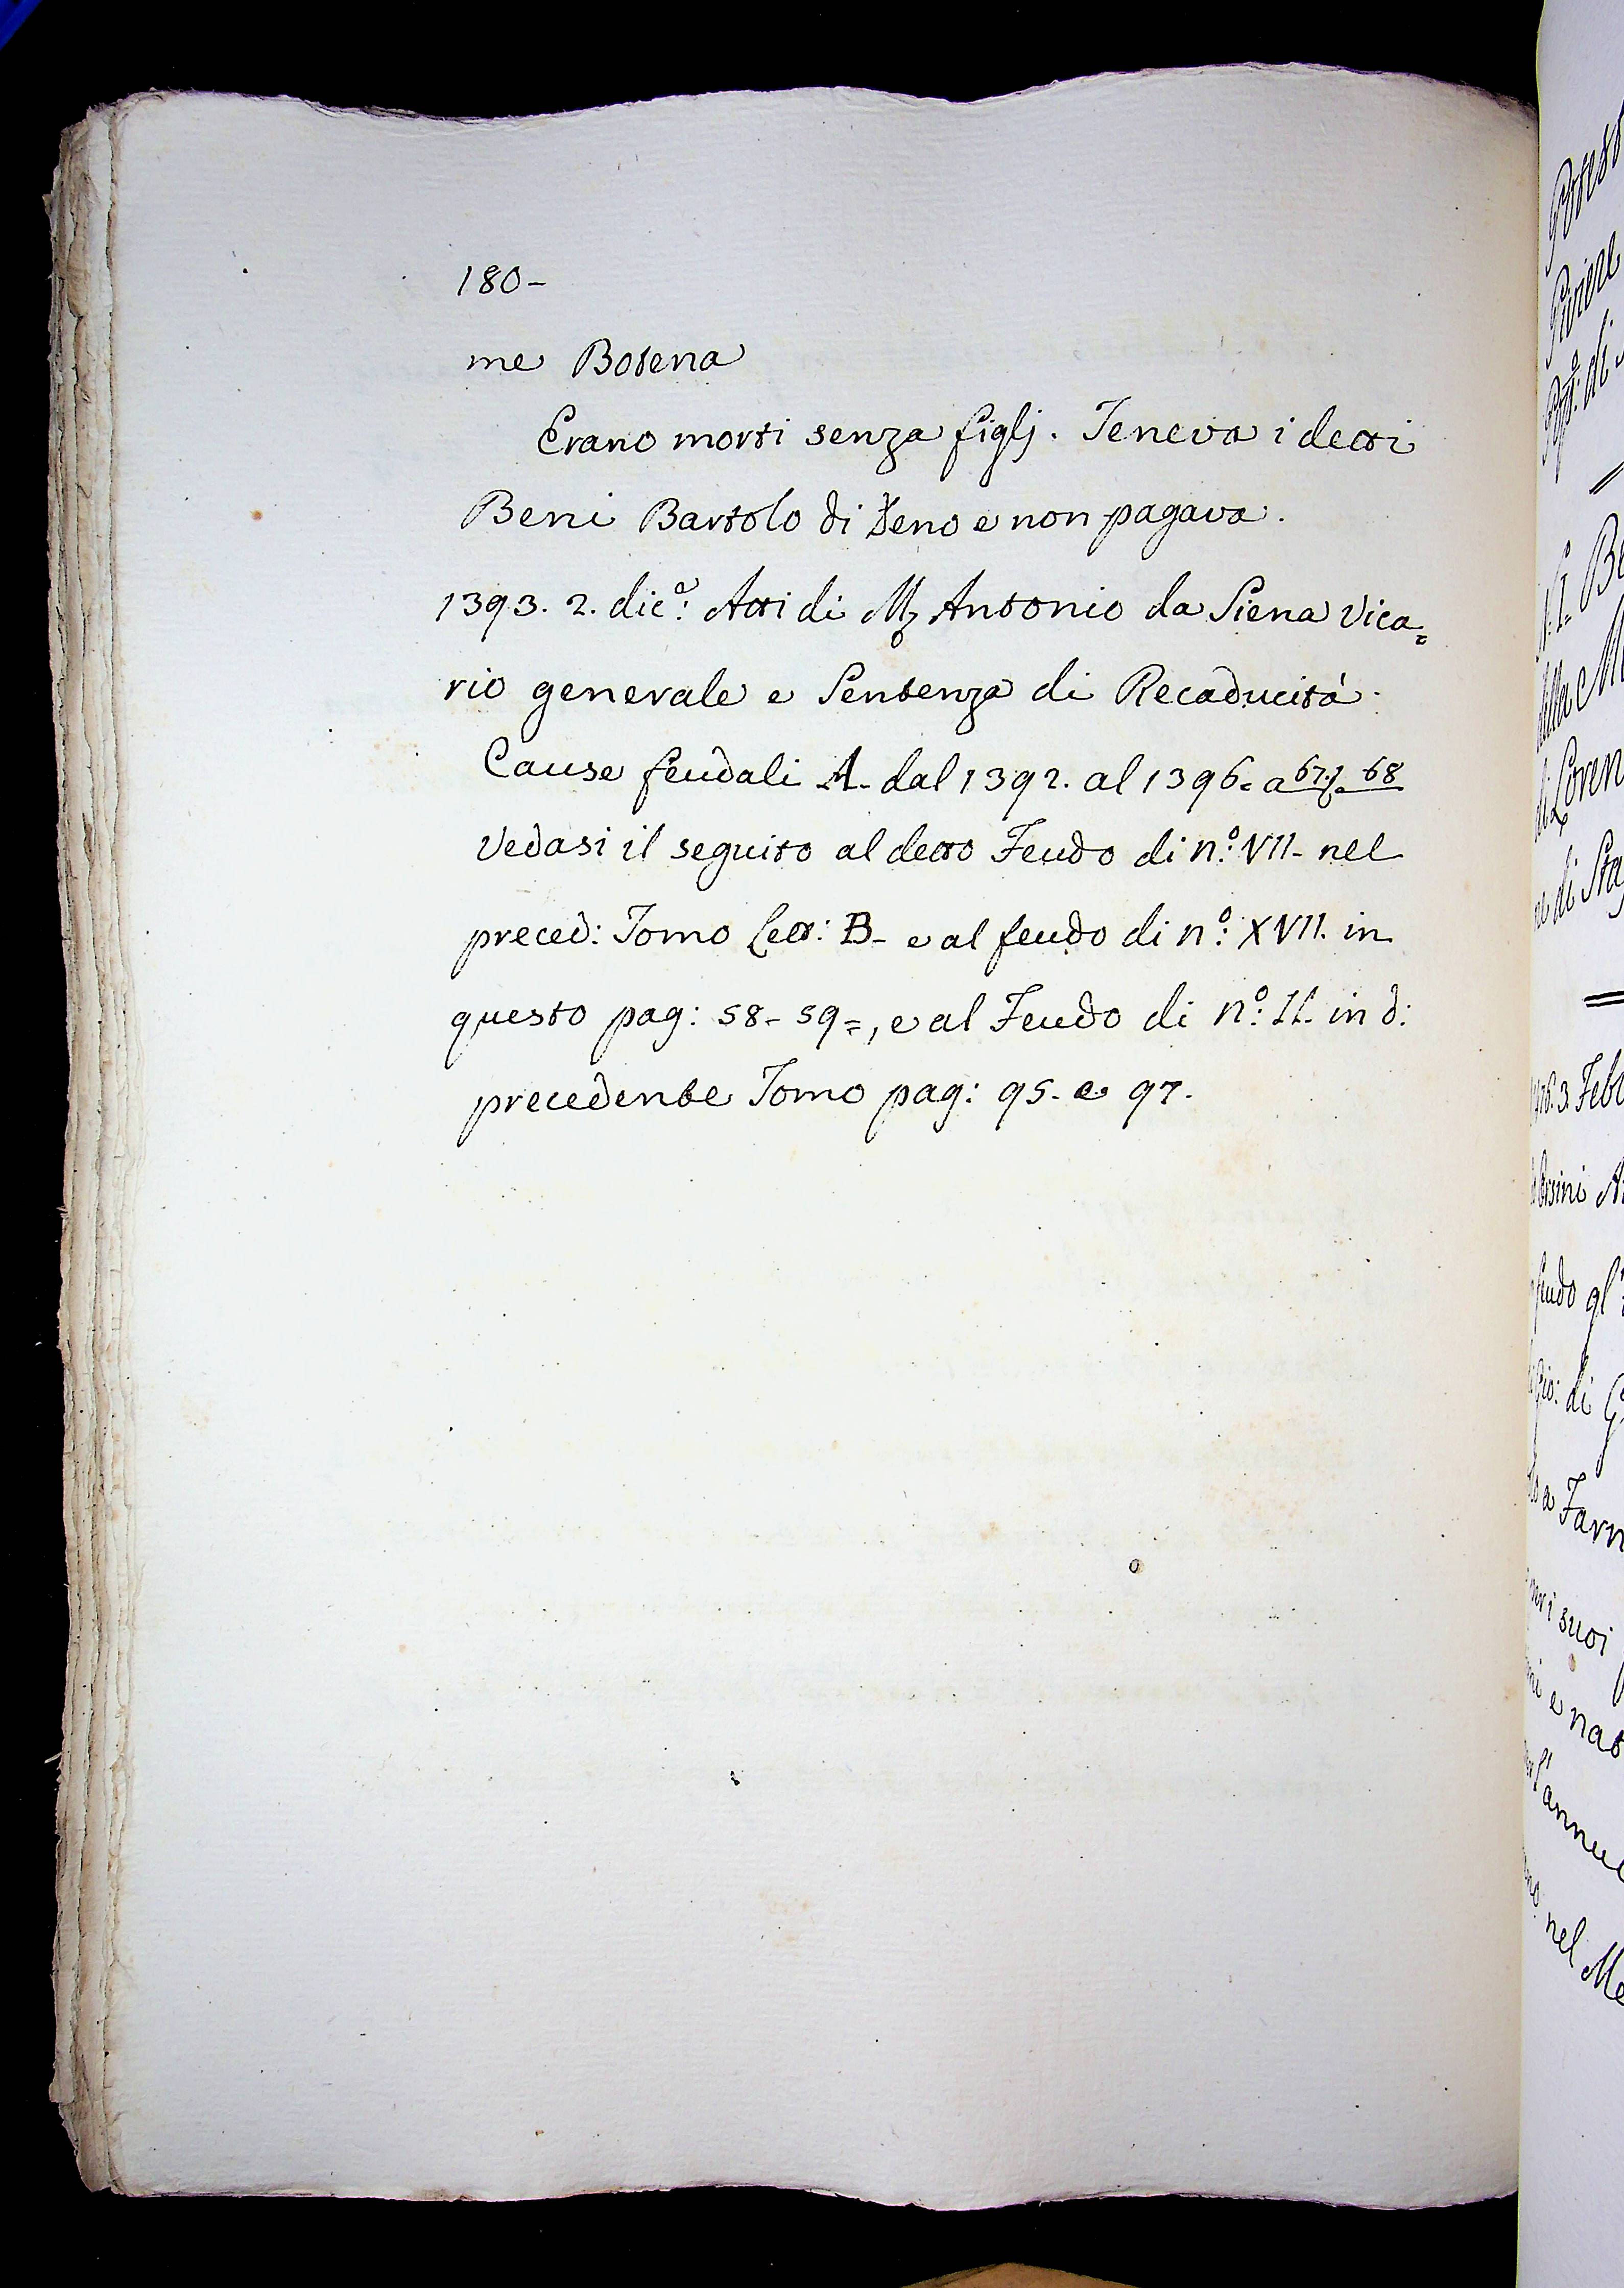 180-
me Botena
Erano morti senza figlj. Teneva i detti
Beni Bartolo di Deno e non pagava.
1393. 2. dic.e Atti di Mz Antonio da Siena Vica=
rio generale e Sentenza di Recaducitá.
Cause feudali A. dal 1392. al 1396. a 67. 68
Vedasi il seguito al detto Feudo di n.o VII- nel
preced: Tomo Lett: B- e al feudo di n.o XVII. in
questo pag: 58- 59=, e al Feudo di n.o II. in d:
precedente Tomo pag: 95. e 97.
Be
3. Feb
Orsini
feudo gl'
Gio: di
a Farn
suoi
e nat
annu
nel Me